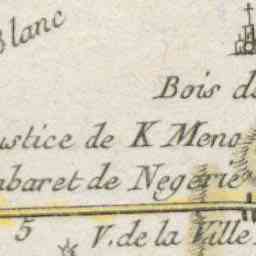 Blanc
Bois de
ustice de K Meno
abaret de Negerie
5
V. de la Ville